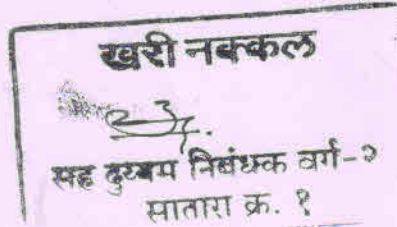 खरी नक्कल
सह दुय्यम निबंधक वर्ग-२
सातारा क्र. १